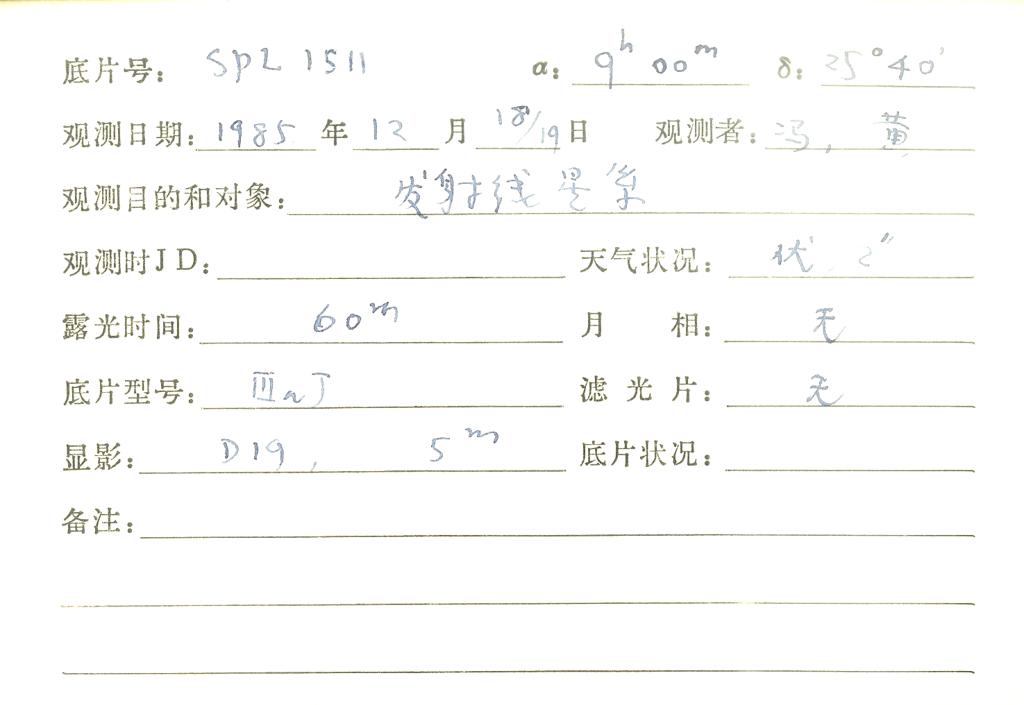 底片号: SPL 1511 α: 9h 00m δ: 25°40′
观测日期: 1985 年 12 月 18/19 日 观测者: 冯, 黄
观测目的和对象: 发射线星系
观测时JD: 天气状况: 2″
露光时间: 60m 月 相: 无
底片型号: ⅢaJ 滤 光 片: 无
显影: D19, 5m 底片状况:
备注: